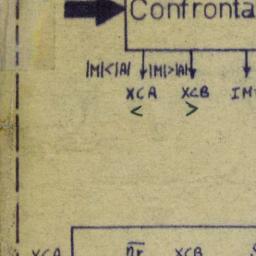 Confronta
|M|<|A| |M|>|A|
XCA XCB IM
< >
XCA nr XCB